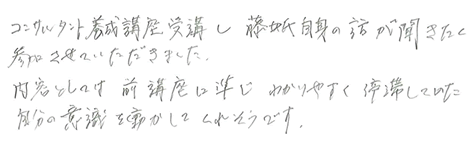 コンサルタント養成講座受講し 藤城自身の話が聞きたく
参加させていただきました.
内容としては 前講座に準じ わかりやすく 停滞していた
自分の意識を動かしてくれそうです.